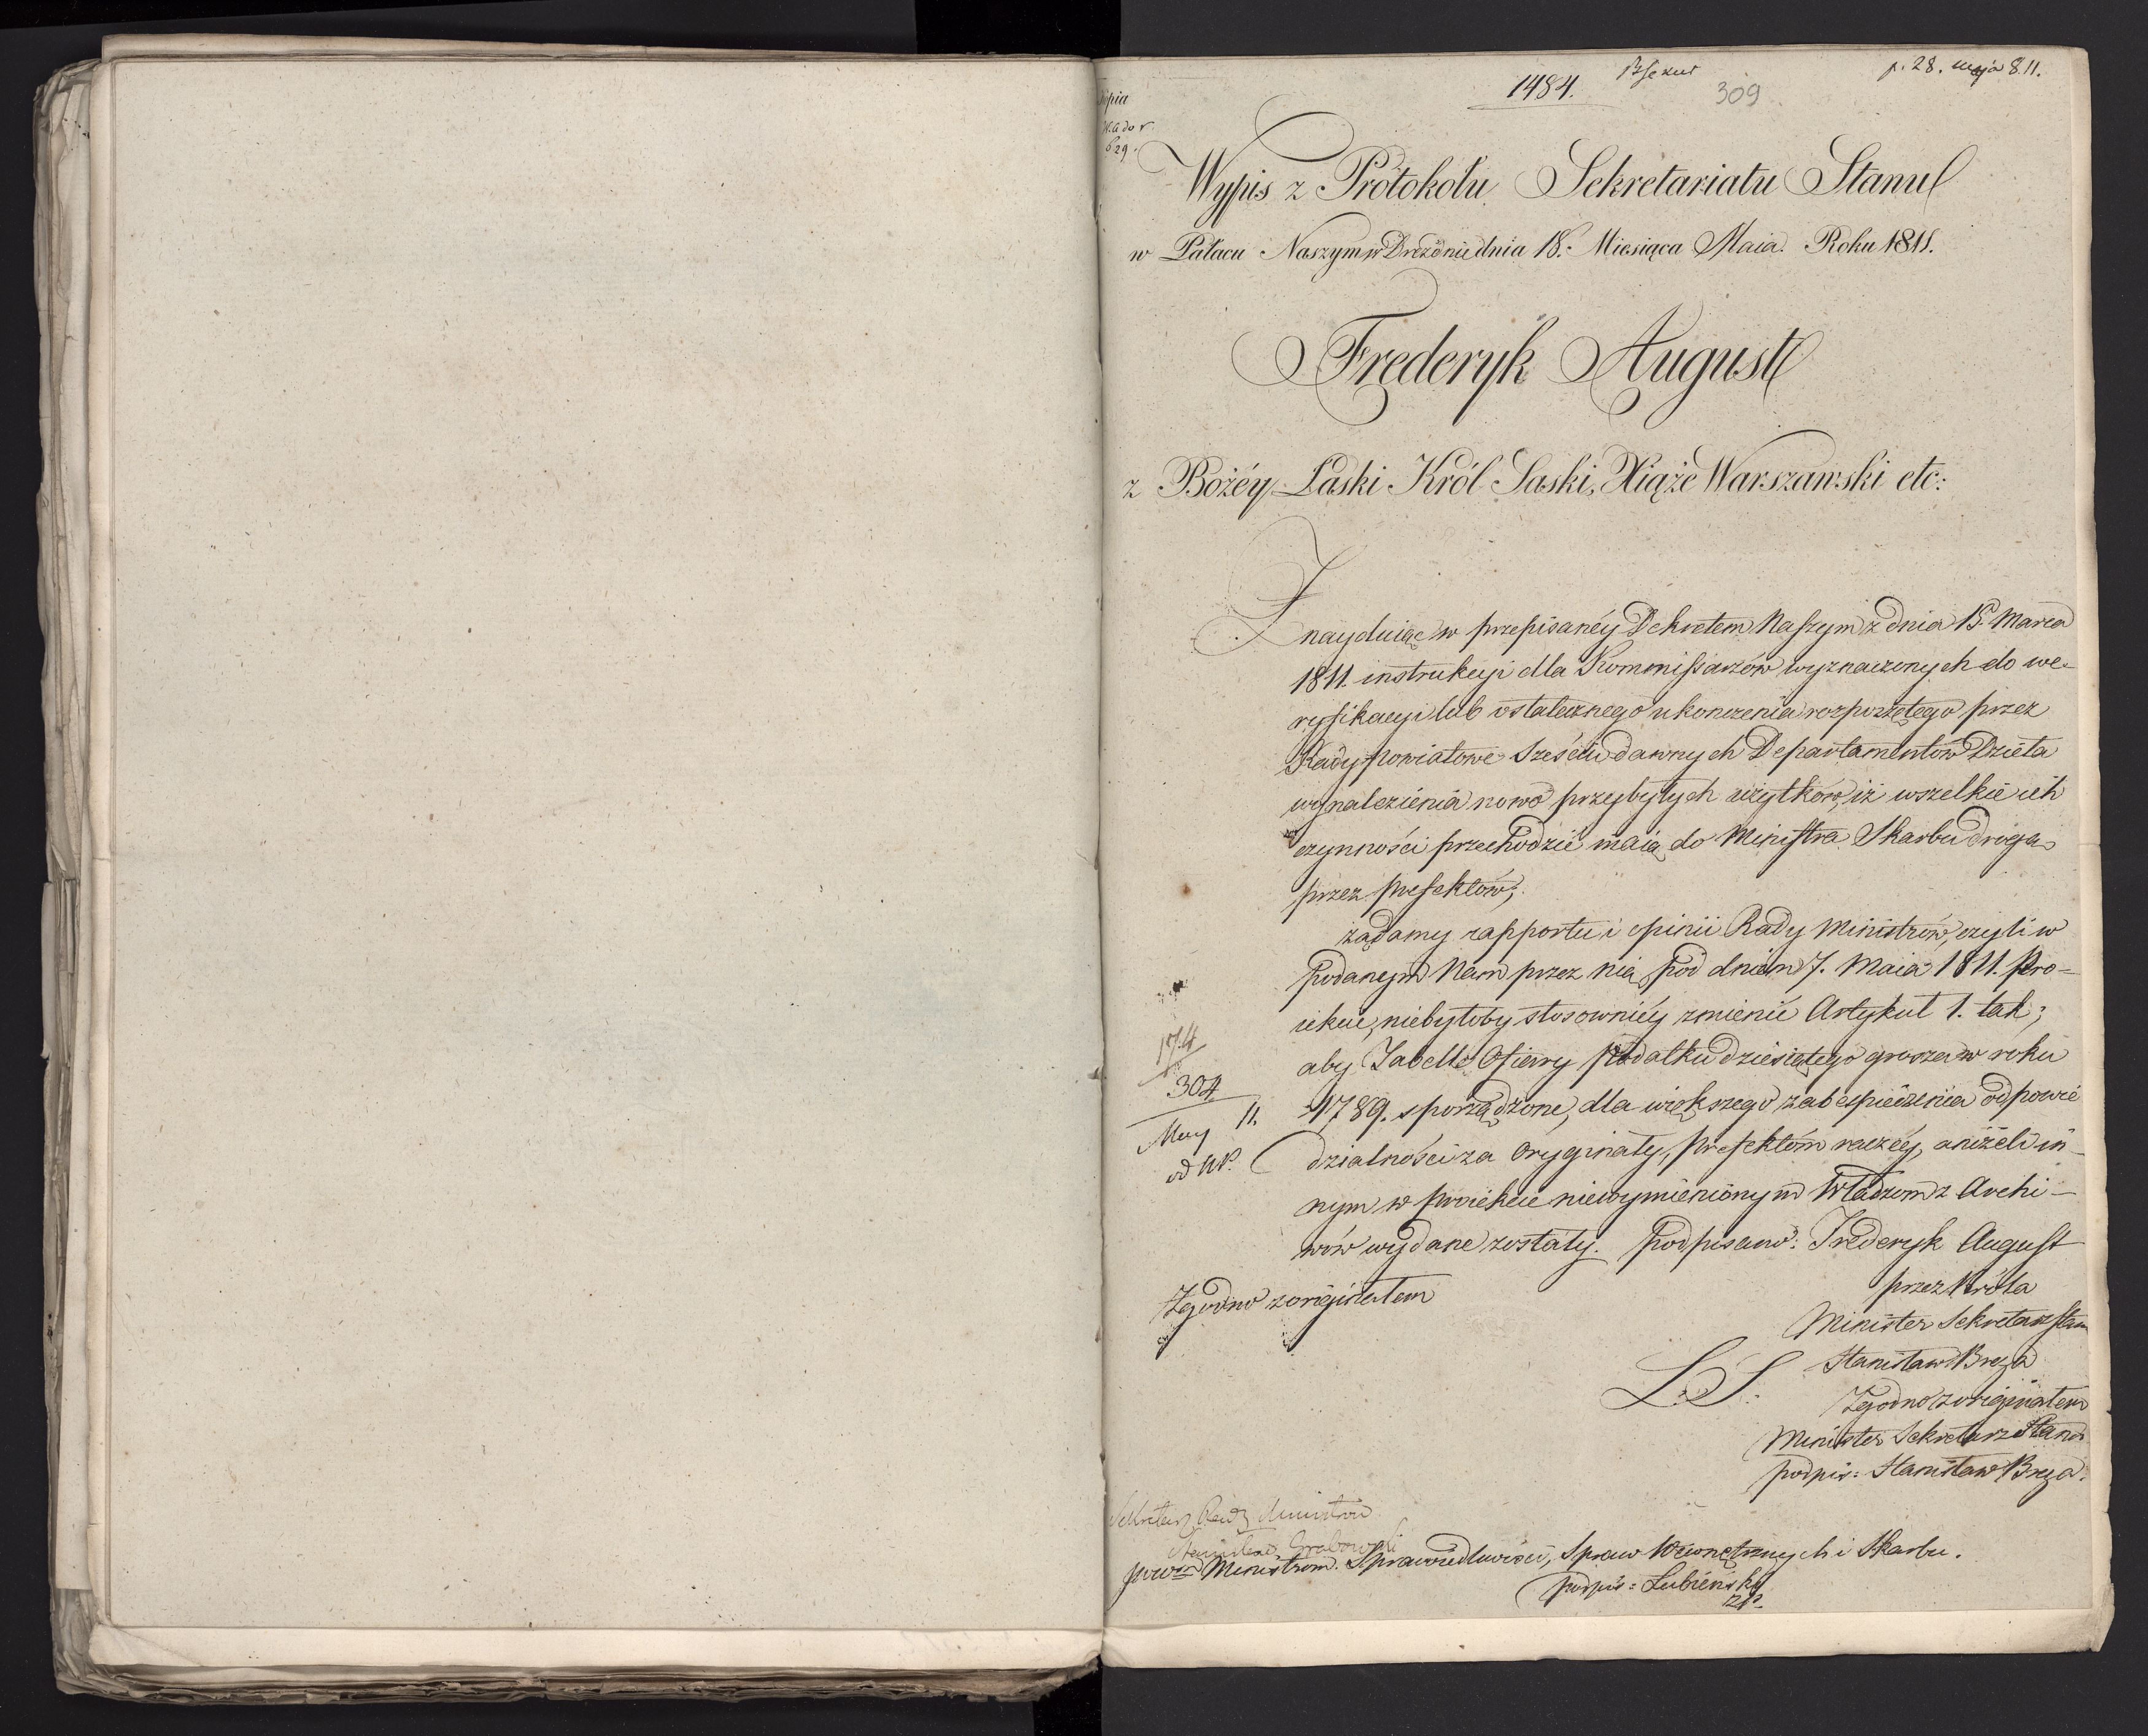 1484.
309
p. 28. maja 811.
Kopia
629.
Wypis z Protokołu Sekretariatu Stanu
w Pałacu Naszym w Dreźdnie dnia 18. Miesiąca Maia. Roku 1811.
Frederyk August
z Bożéy Łaski Król Saski, Xiąże Warszawski etc:
Znayduiąc w przepisanéy Dekretem Naszym z dnia 15. Marca
1811. instrukcyi dla Kommissarzów wyznaczonych do we-
ryfikacyi lub ostatecznego ukonczenia rozpoczętego przez
Rady powiatowe sześciu dawnych Departamentów Dzieła
wynalezienia nowo przybyłych użytków, iż wszelkie ich
czynności przechodzić maią do Ministra Skarbu drogą
przez prefektów;
żądamy rapportu i opinii Rady Ministrów, czyli w
podanym Nam przez nią pod dniem 7. Maia 1811. Pro-
iekcie, niebyłoby stosowniéy zmienić Artykuł 1. tak;
aby Tabelle Ofiary podatku dziesiątego grosza w roku
1789. sporządzone, dla większego zabespieczenia odpowie
dzialności za oryginały, prefektom raczéy, aniżeli in-
nym w proiekcie niewymienionym Władzom z Archi-
wów wydane zostały. podpisano: Frederyk August
przez Króla
Minister Sekretarz Stanu
Stanisław Breza
174
304
May 11.
Zgodno z originałem
L. S.
Zgodno z originałem
Minister Sekretarz Stanu
podpis: Stanisław Breza.
Sekretarz Rady Ministrów
Stanisław Grabowski
Ministrom Sprawiedliwości, Spraw Wewnętrznych i Skarbu.
podpis: Lubieński